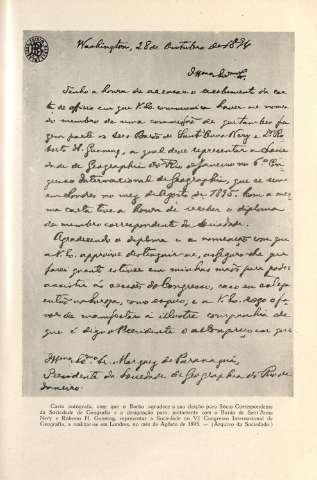 Washington, 28 de Outubro de 1894
Illmo Exmo Sr.
Tenho a honra de accusar o recebimento da car-
ta de officio em que V. Ex. communica haver me nomea-
do membro de uma commissão de que tambem fa-
zem parte os Srs Barão de Sant'Anna Nery e Dr Ro-
berto H. Gunning, a qual deve representar a Socie-
dade de Geographia do Rio de Janeiro no 6º Con-
gresso Internacional de Geographia, que se reune
em Londres no mez de Agosto de 1895. Com a mes-
ma carta tive a honra de receber o diploma
de membro correspondente da Sociedade.
Agradecendo o diploma e a nomeação com que
a V. Ex. approuve distinguir-me, asseguro-lhe que
farei quanto estiver em minhas mãos para poder
assistir ás sessões do Congresso, caso eu esteja
então na Europa, como espero, e a V. Ex. rogo o fa-
vor de manifestar á illustre companhia de
que é digno Presidente o alto apreço em que
Illmo Exmo Sr. Marquez de Paranaguá,
Presidente da Sociedade de Geographia do Rio de
Janeiro.
Carta autografa, com que o Barão agradece a sua eleição para Sócio Correspondente
da Sociedade de Geografia e a designação para, juntamente com o Barão de Sant'Anna
Nery e Roberto H. Gunning, representar a Sociedade no VI Congresso Internacional de
Geografia, a realizar-se em Londres, no mês de Agôsto de 1895. — (Arquivo da Sociedade)